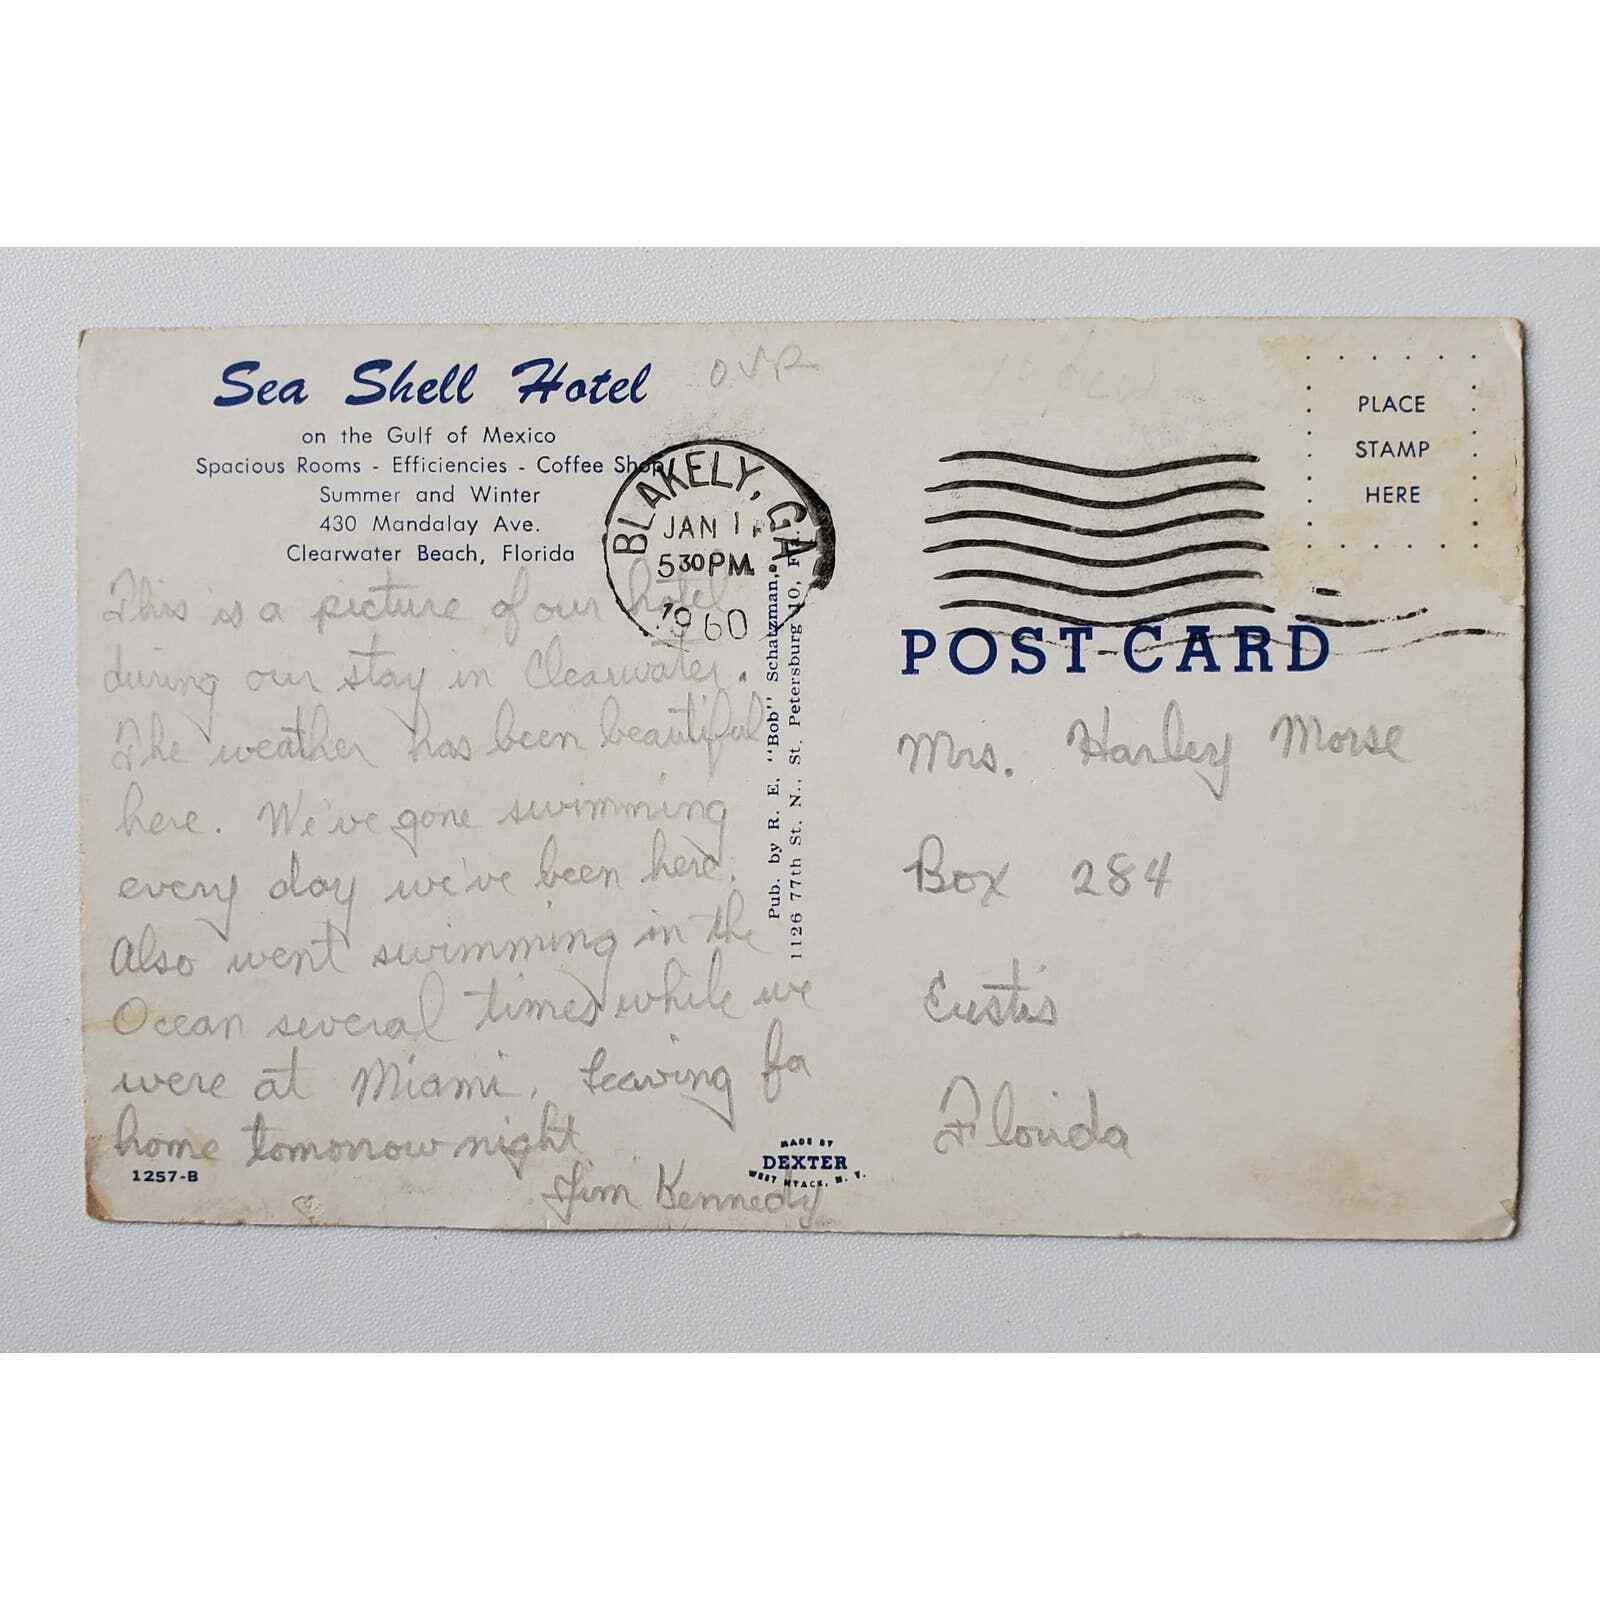 Sea Shell Hotel
on the Gulf of Mexico
Spacious Rooms - Efficiencies - Coffee Shop
Summer and Winter
430 Mandalay Ave.
Clearwater Beach, Florida
This is a picture of our hotel
during our stay in Clearwater.
The weather has been beautiful
here. We've gone swimming
every day we've been here.
Also went swimming in the
Ocean several times while we
were at Miami. Leaving for
home tomorrow night
Jim Kennedy
1257-B
BLAKELY, GA.
JAN 1
5 30 PM
1960
Pub. by R. E. "Bob" Schatzman,
1126 77th St. N., St. Petersburg 10,
MADE BY
DEXTER
WEST NYACK, N. Y.
PLACE
STAMP
HERE
POST CARD
Mrs. Harley Morse
Box 284
Eustis
Florida